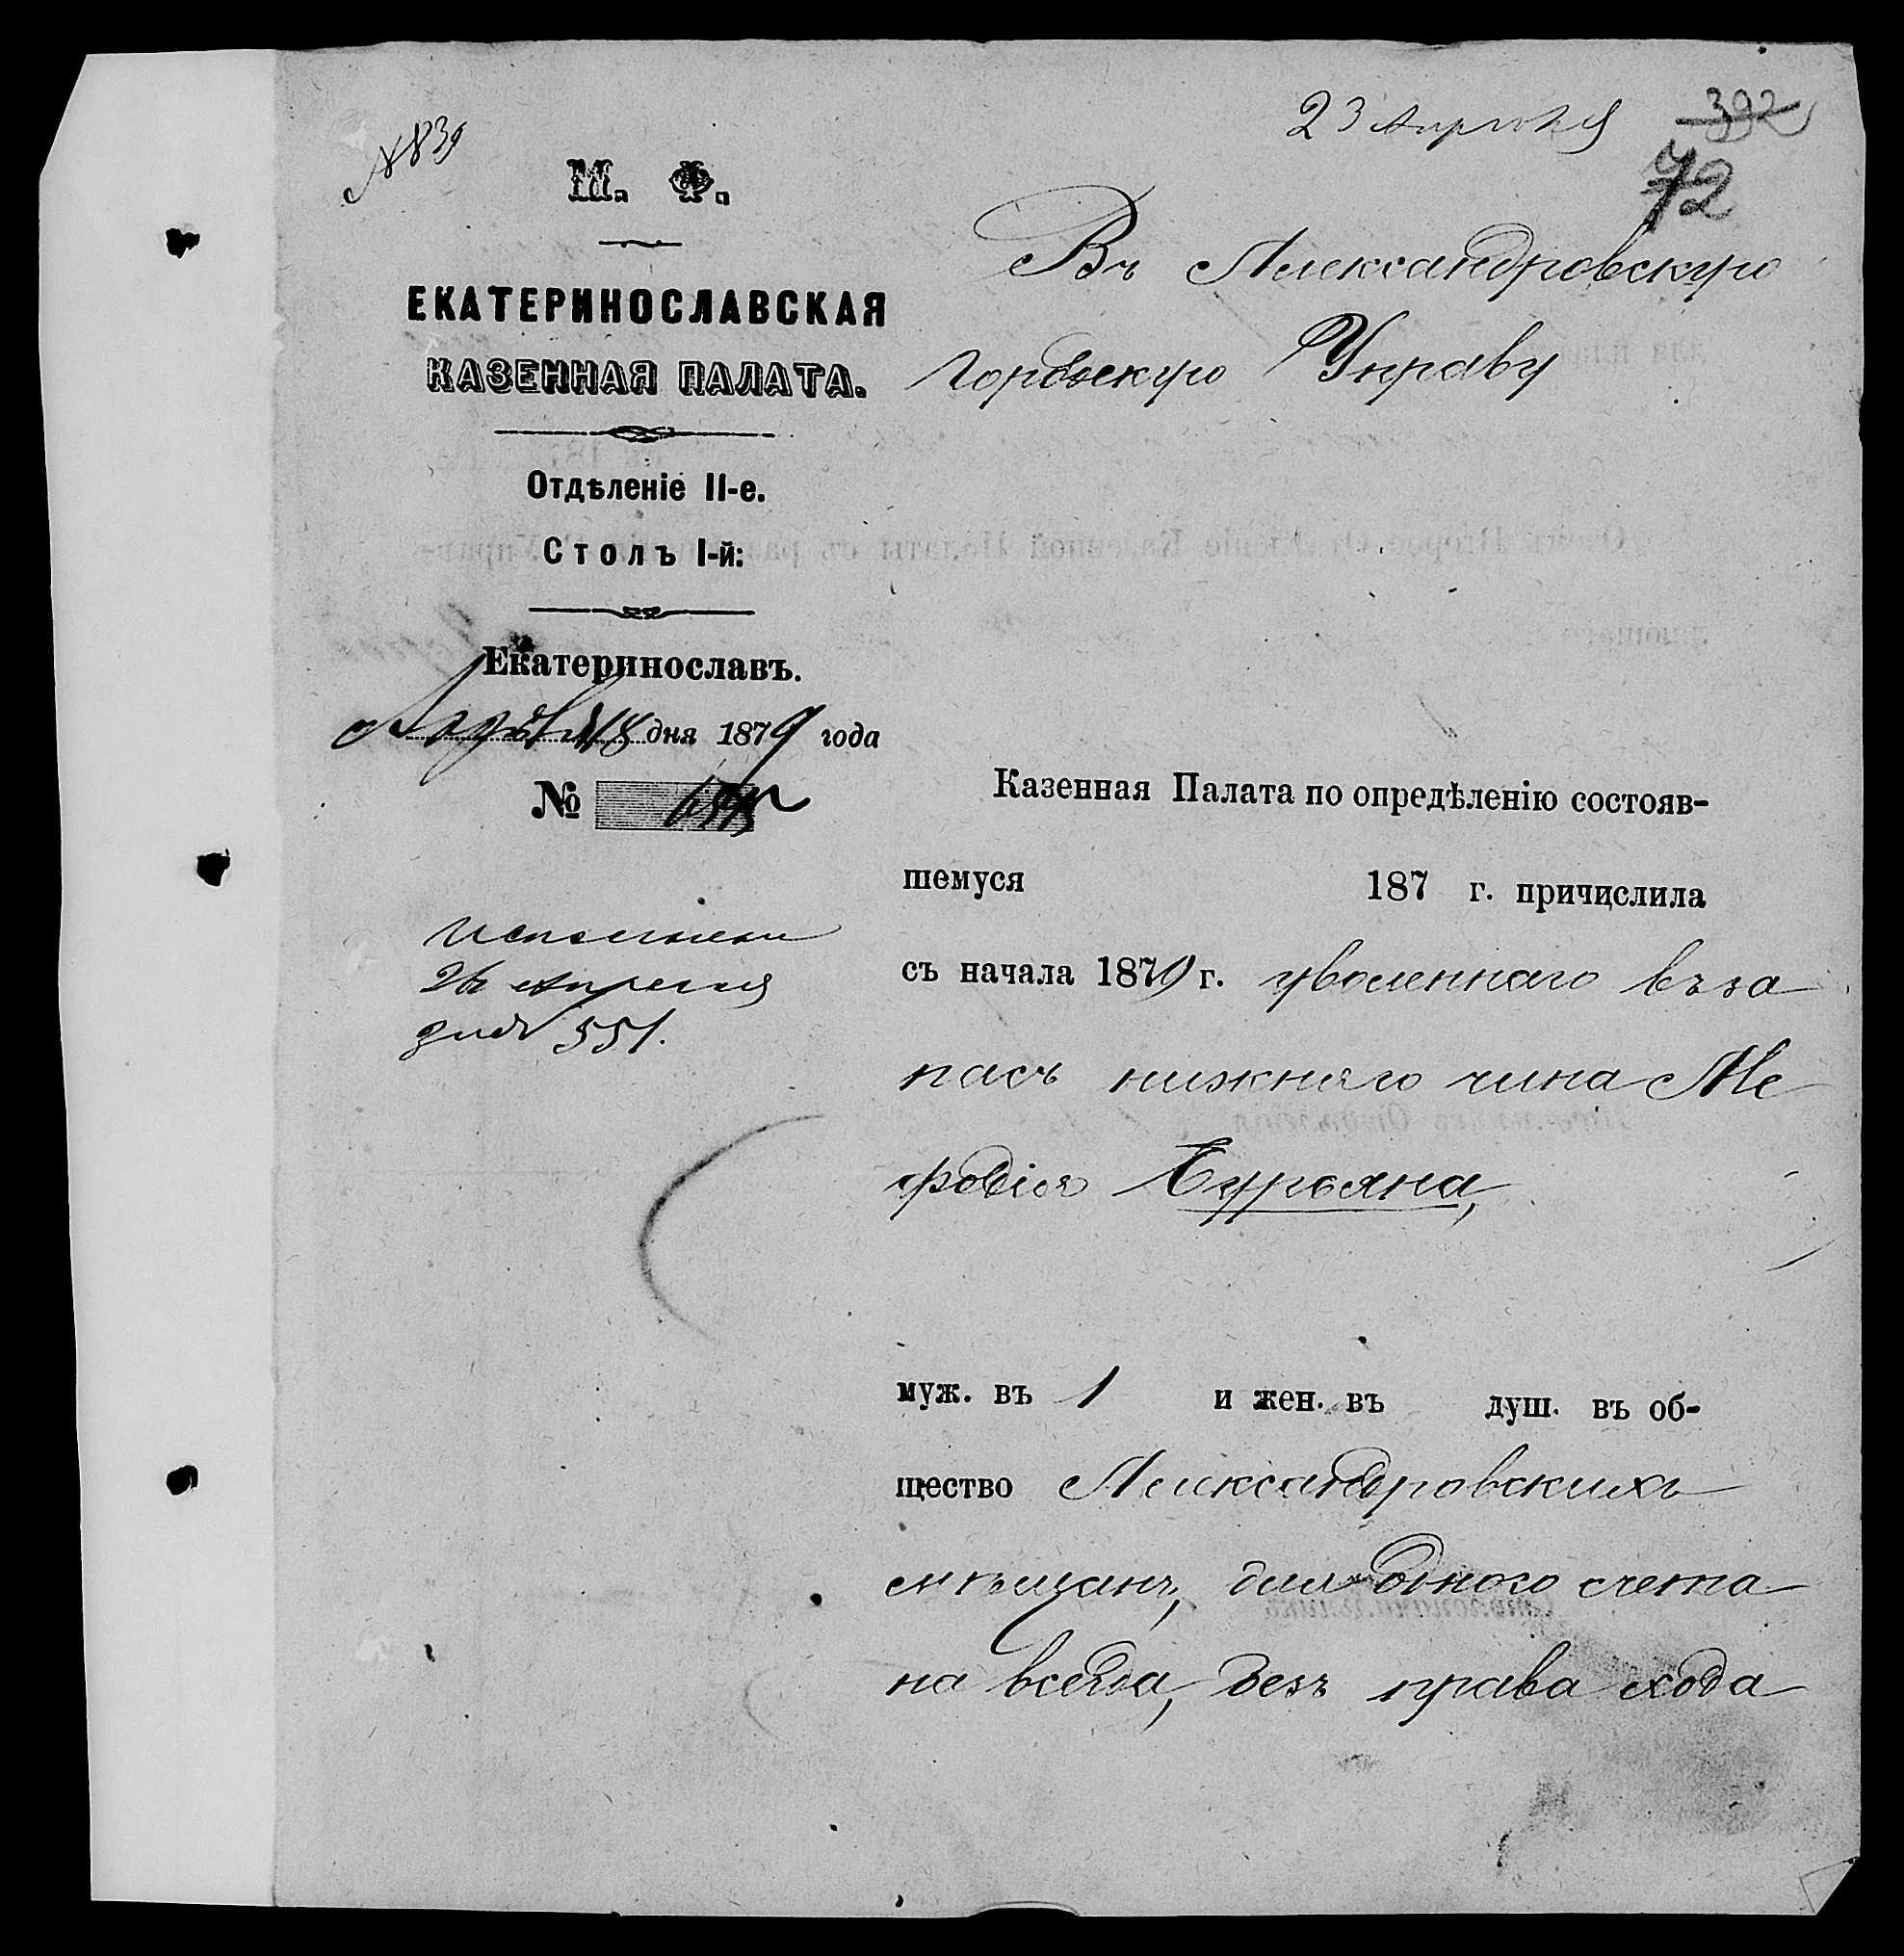 № 839
23 Апрѣля
392
72
М. Ф.
ЕКАТЕРИНОСЛАВСКАЯ
КАЗЕННАЯ ПАЛАТА.
Отдѣленіе II-е.
Столъ I-й:
Екатеринославъ.
18 дня 1879 года
№
Исполнено
26 Апреля
за № 551.
Въ Александровскую
Городскую Управу
Казенная Палата по опредѣленію состояв-
шемуся 187 г. причислила
съ начала 1879 г. уволеннаго въ за
пасъ нижняго чина Ме
фодія Бурьяна,
муж. въ 1 и жен. въ душ. въ об-
щество Александровскихъ
мѣщанъ, для одного счета
на всегда, безъ права схода